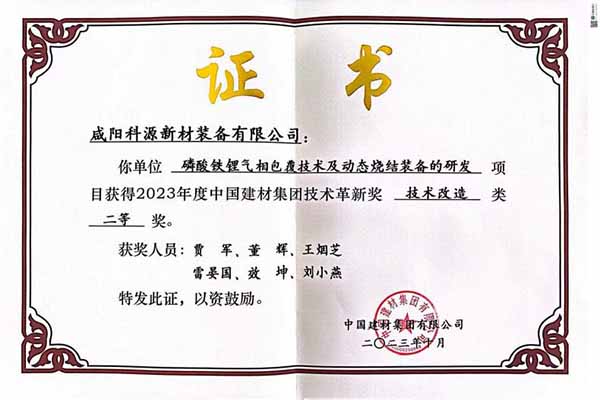 证书
咸阳科源新材装备有限公司：
你单位 磷酸铁锂气相包覆技术及动态烧结装备的研发 项
目获得2023年度中国建材集团技术革新奖 技术改造 类
二等 奖。
获奖人员：贾 军、董 辉、王烟芝
雷晏国、效 坤、刘小燕
特发此证，以资鼓励。
中国建材集团有限公司
二〇二三年十月
中国建材集团有限公司